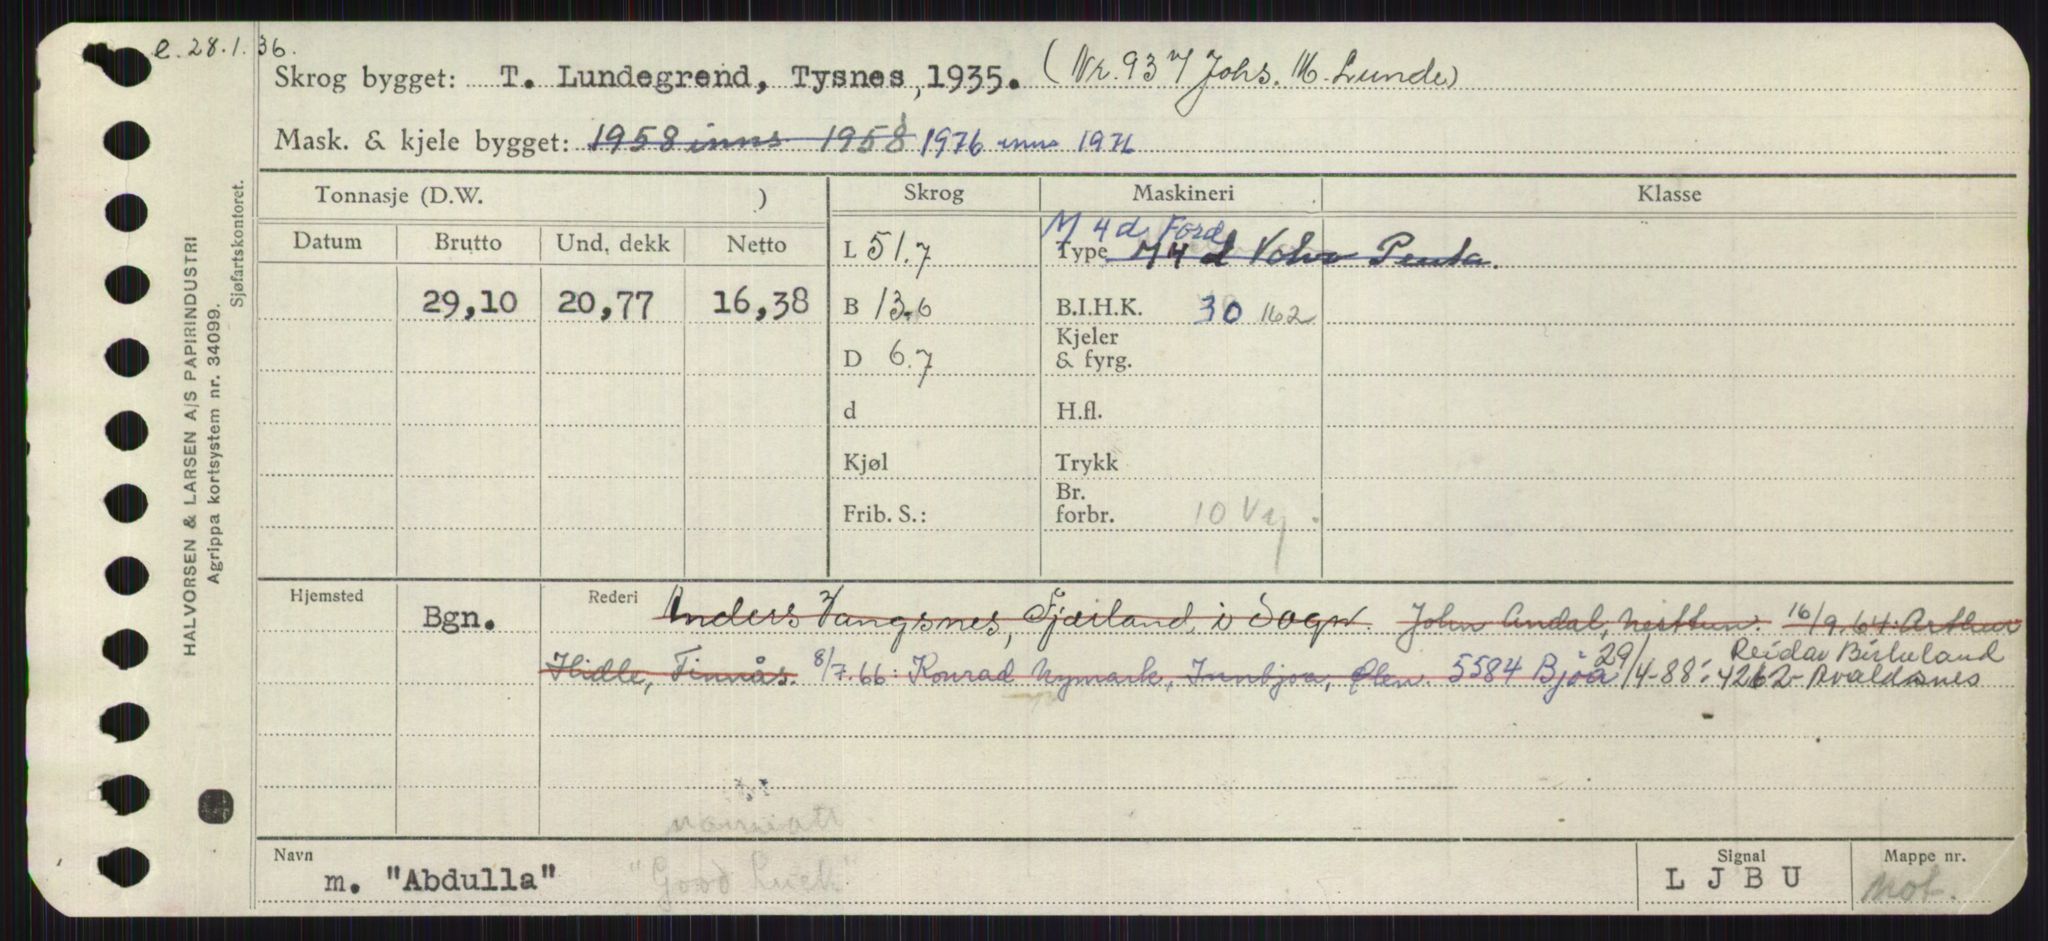 e. 28.1.36.
Skrog bygget: T. Lundegrend, Tysnes, 1935. (Nr. 937 Johs. M. Lunde)
Mask. & kjele bygget: 1958 inns 1958 1976 inns 1976
Tonnasje (D.W. ) Skrog Maskineri Klasse
Datum Brutto Und. dekk Netto
M 4 d Ford
L 51.7 Type M 4 d Volvo Penta.
29,10 20,77 16,38 B 13.6 B.I.H.K. 30 162
Kjeler
D 6.7 & fyrg.
d H.fl.
Kjøl Trykk
Br.
Frib. S.: forbr. 10
Hjemsted Bgn. Rederi Anders Vangsnes, Fjærland i Sogn. John Andal, Nesttun. 16/9.64: Arthur
Hidle, Finnås. 8/7.66: Konrad Nymark, Innbjoa, Ølen. 5584 Bjoa 29/4-88: Reidar Birkeland
4262 Avaldsnes
Navn m. "Abdulla" "Good Luck" Signal L J B U Mappe nr. Mot.
HALVORSEN & LARSEN A/S PAPIRINDUSTRI
Agrippa kortsystem nr. 34099.
Sjøfartskontoret.